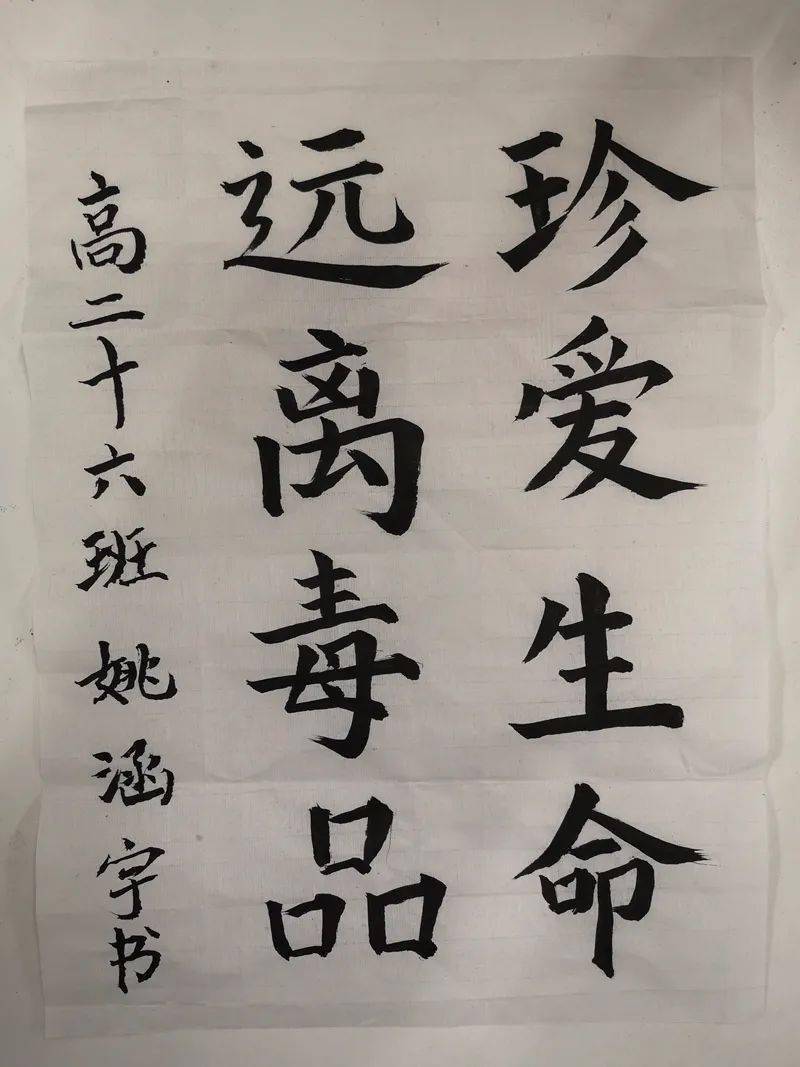 珍爱生命
远离毒品
高二十六班姚涵宇书